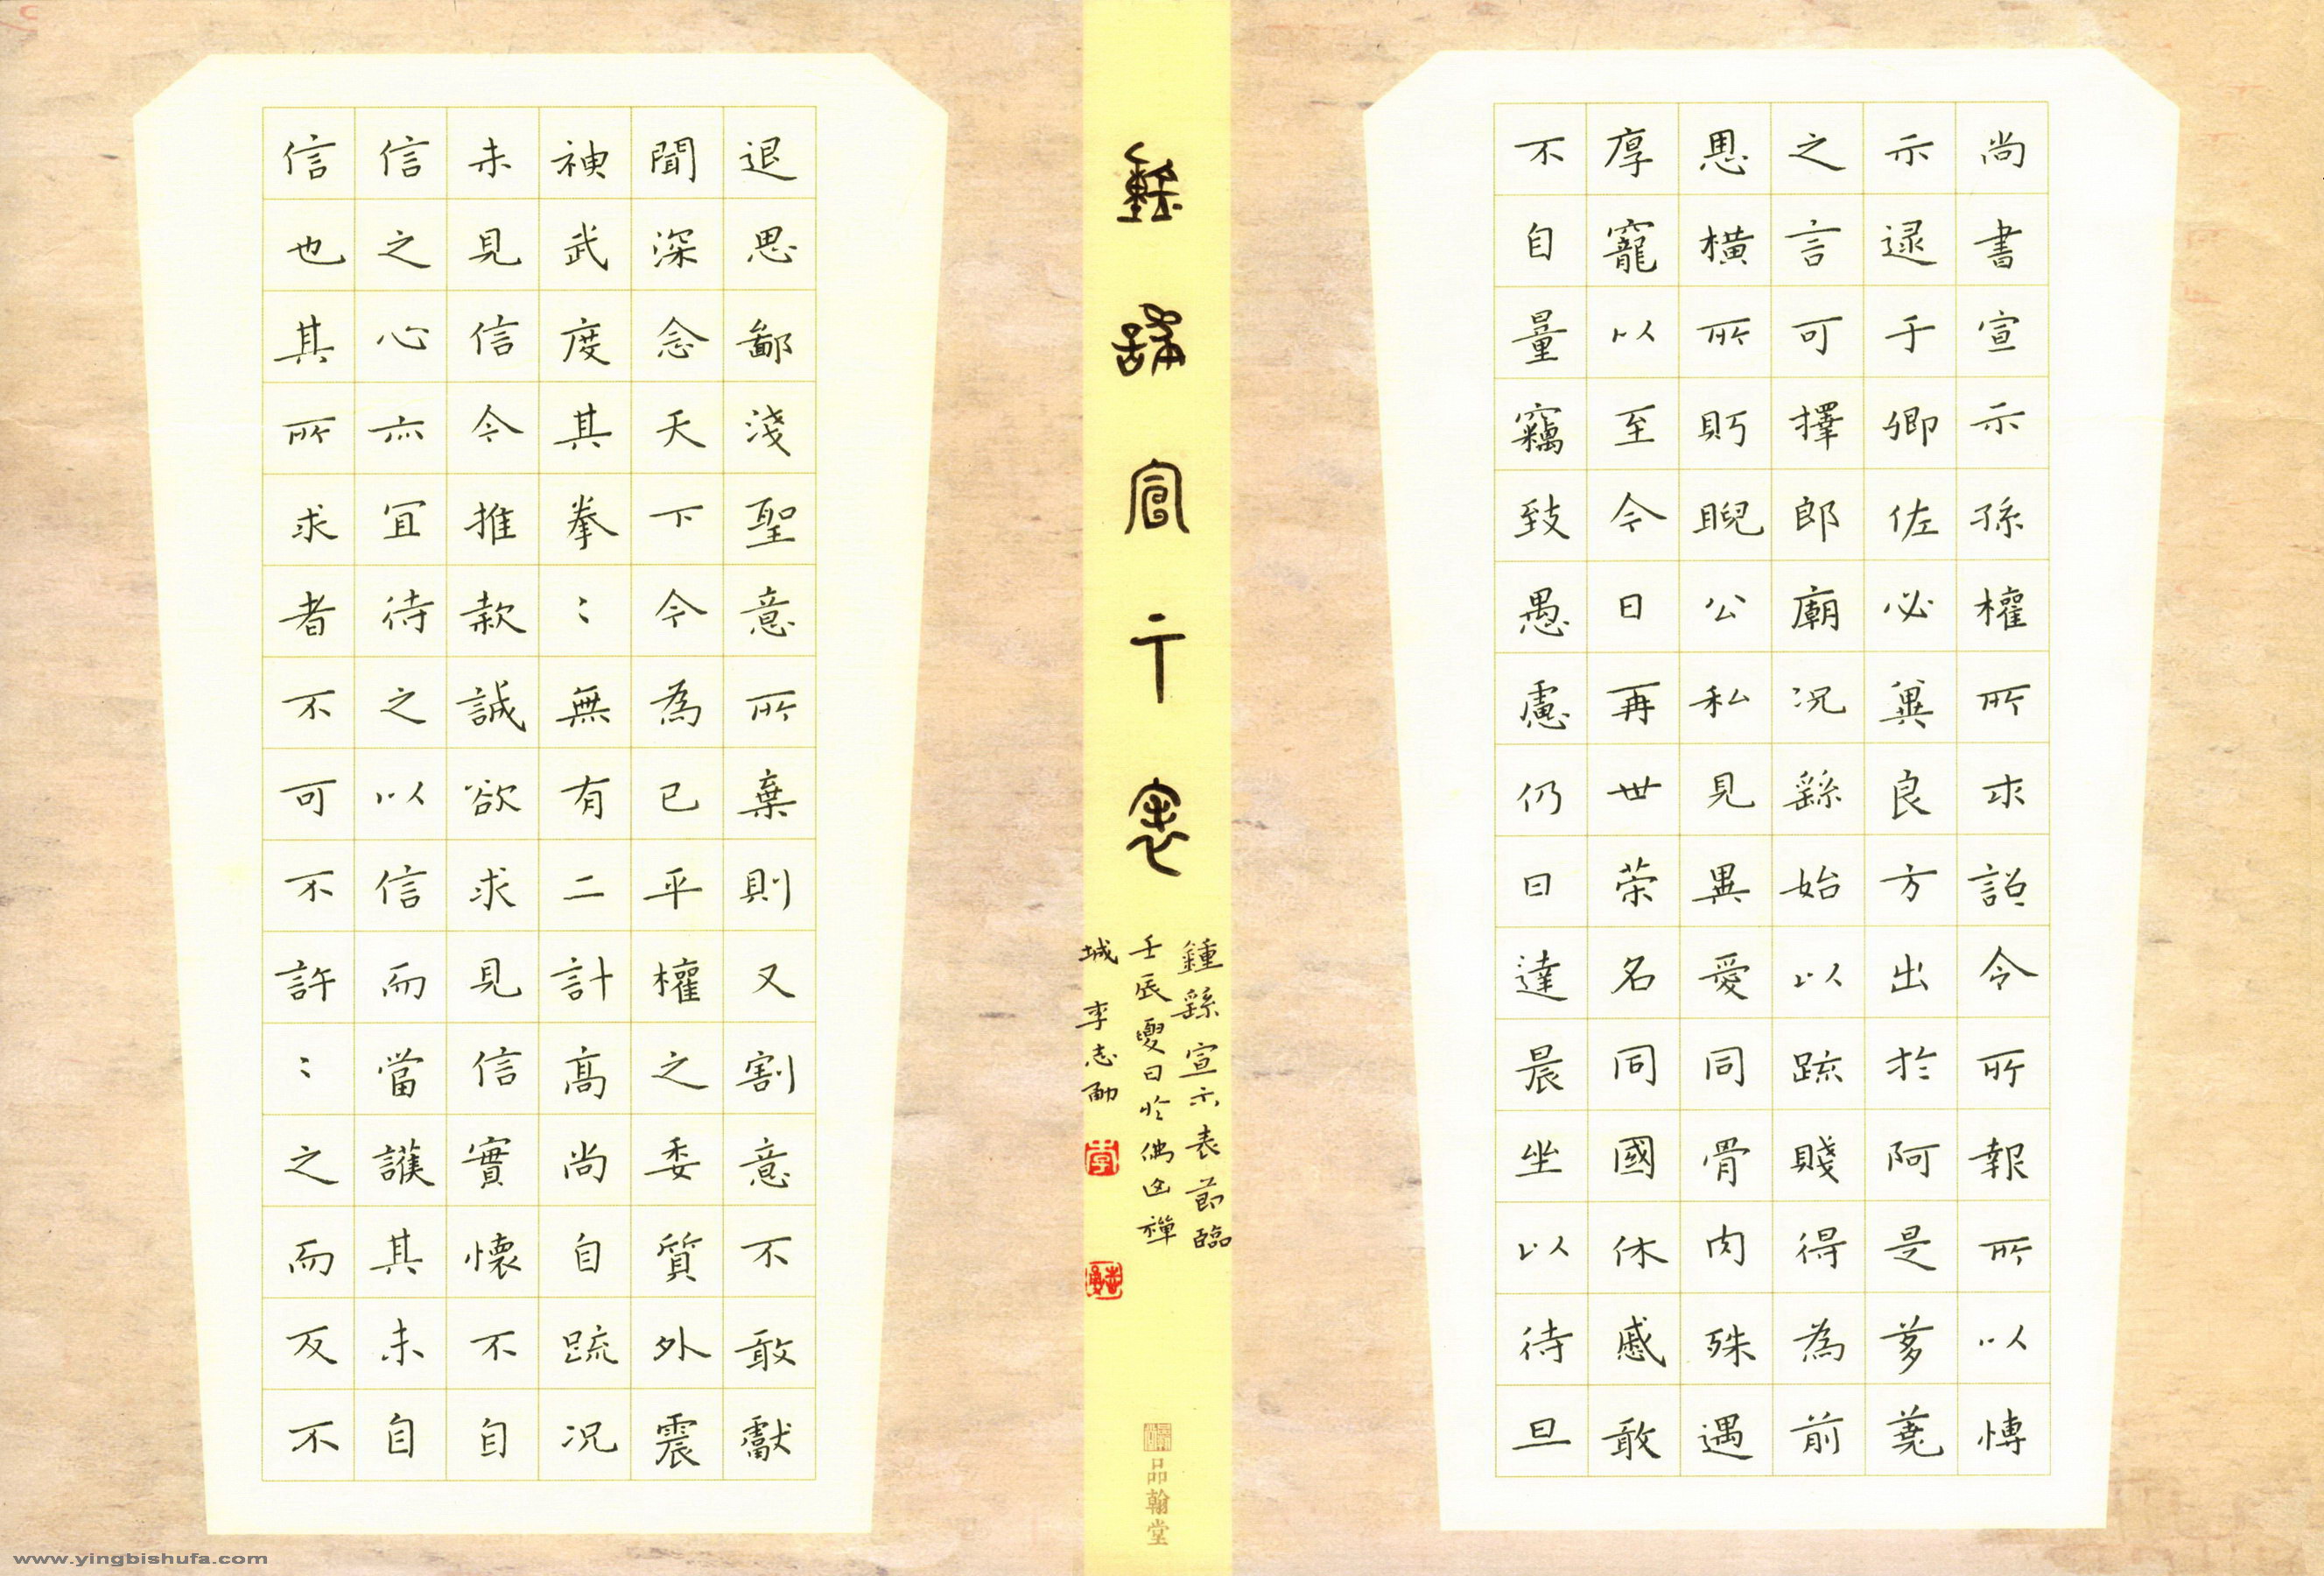 尚書宣示孫權所求詔令所報所以博
示逮于卿佐必冀良方出於阿是芻蕘
之言可擇郎廟況繇始以疏賤得為前
思橫所眄睨公私見異愛同骨肉殊遇
厚寵以至今日再世荣名同國休慼敢
不自量竊致愚慮仍日達晨坐以待旦
鍾繇宣示表
鍾繇宣示表節臨
壬辰夏日於佛山禪
城 李志勇
品翰堂
退思鄙淺聖意所棄則又割意不敢獻
聞深念天下今為已平權之委質外震
神武度其拳〻無有二計高尚自疏況
未見信今推款誠欲求見信實懷不自
信之心亦宜待之以信而當護其未自
信也其所求者不可不許〻之而反不
www.yingbishufa.com